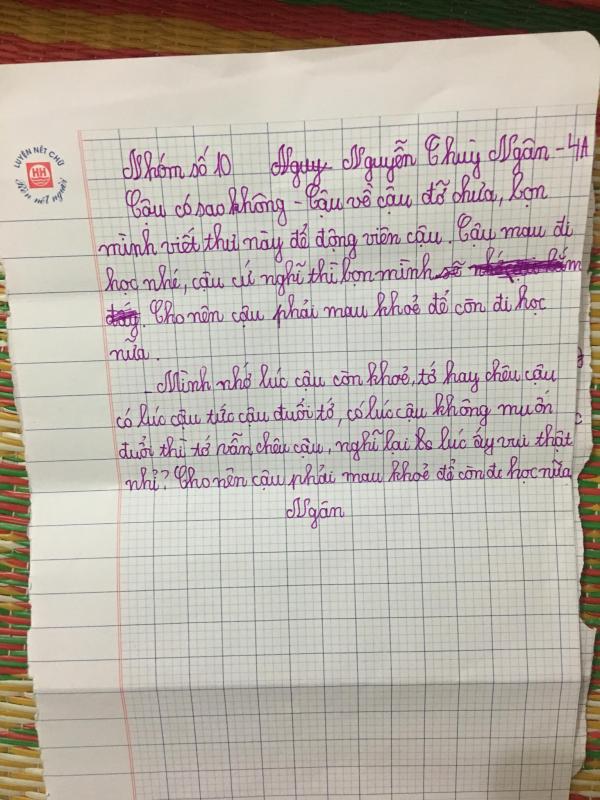 LUYỆN NÉT CHỮ
HH
Rèn nết người
Nhóm số 10 Nguy Nguyễn Thuỳ Ngân - 4A
Cậu có sao không - Cậu về cậu đỡ chưa, bọn
mình viết thư này để động viên cậu. Cậu mau đi
học nhé, cậu cứ nghĩ thì bọn mình sẽ
. Cho nên cậu phải mau khoẻ để còn đi học
nữa.
- Mình nhớ lúc cậu còn khoẻ, tớ hay chêu cậu
có lúc cậu tức cậu đuổi tớ, có lúc cậu không muốn
đuổi thì tớ vẫn chêu cậu, nghĩ lại lúc ấy vui thật
nhỉ? Cho nên cậu phải mau khoẻ để còn đi học nữa
Ngân